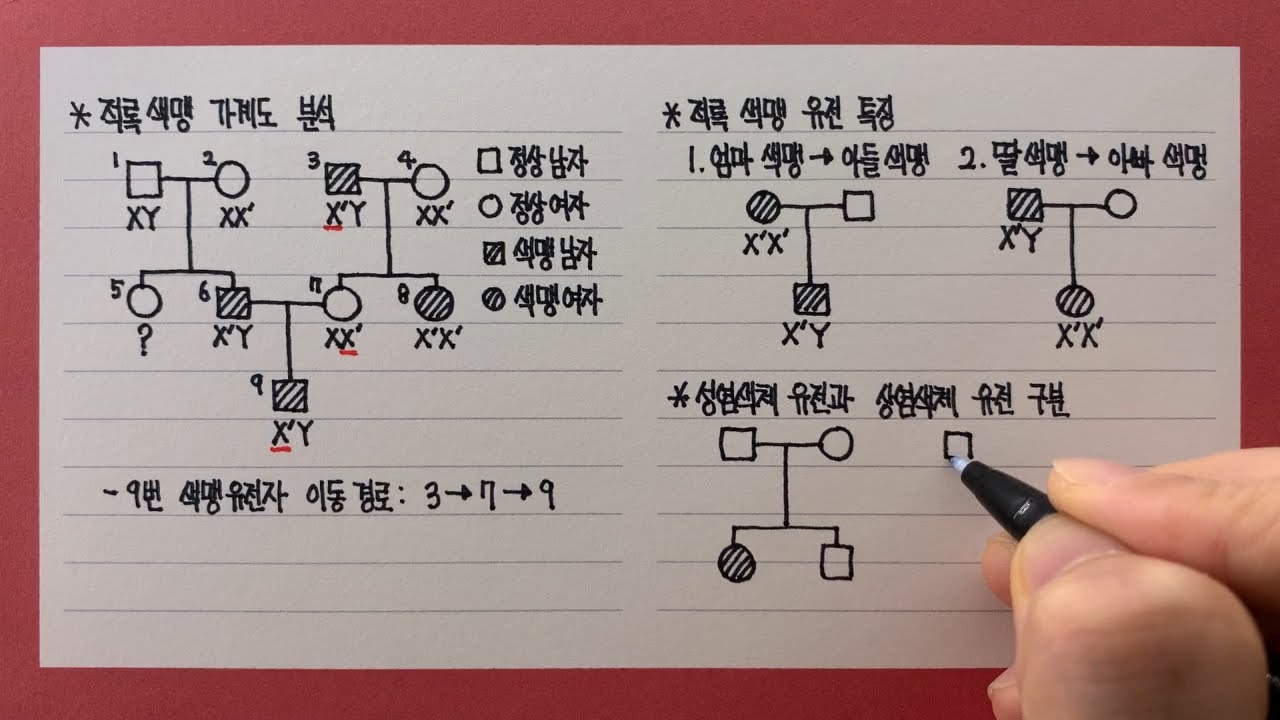 * 적록색맹 가계도 분석
1 2 3 4 □ 정상 남자
XY XX' X'Y XX' ○ 정상 여자
색맹 남자
5 6 7 8 색맹 여자
? X'Y XX' X'X'
9
X'Y
- 9번 색맹유전자 이동 경로 : 3→7→9
* 적록 색맹 유전 특징
1. 엄마 색맹 → 아들 색맹 2. 딸 색맹 → 아빠 색맹
X'X' X'Y
X'Y X'X'
* 성염색체 유전과 상염색체 유전 구분